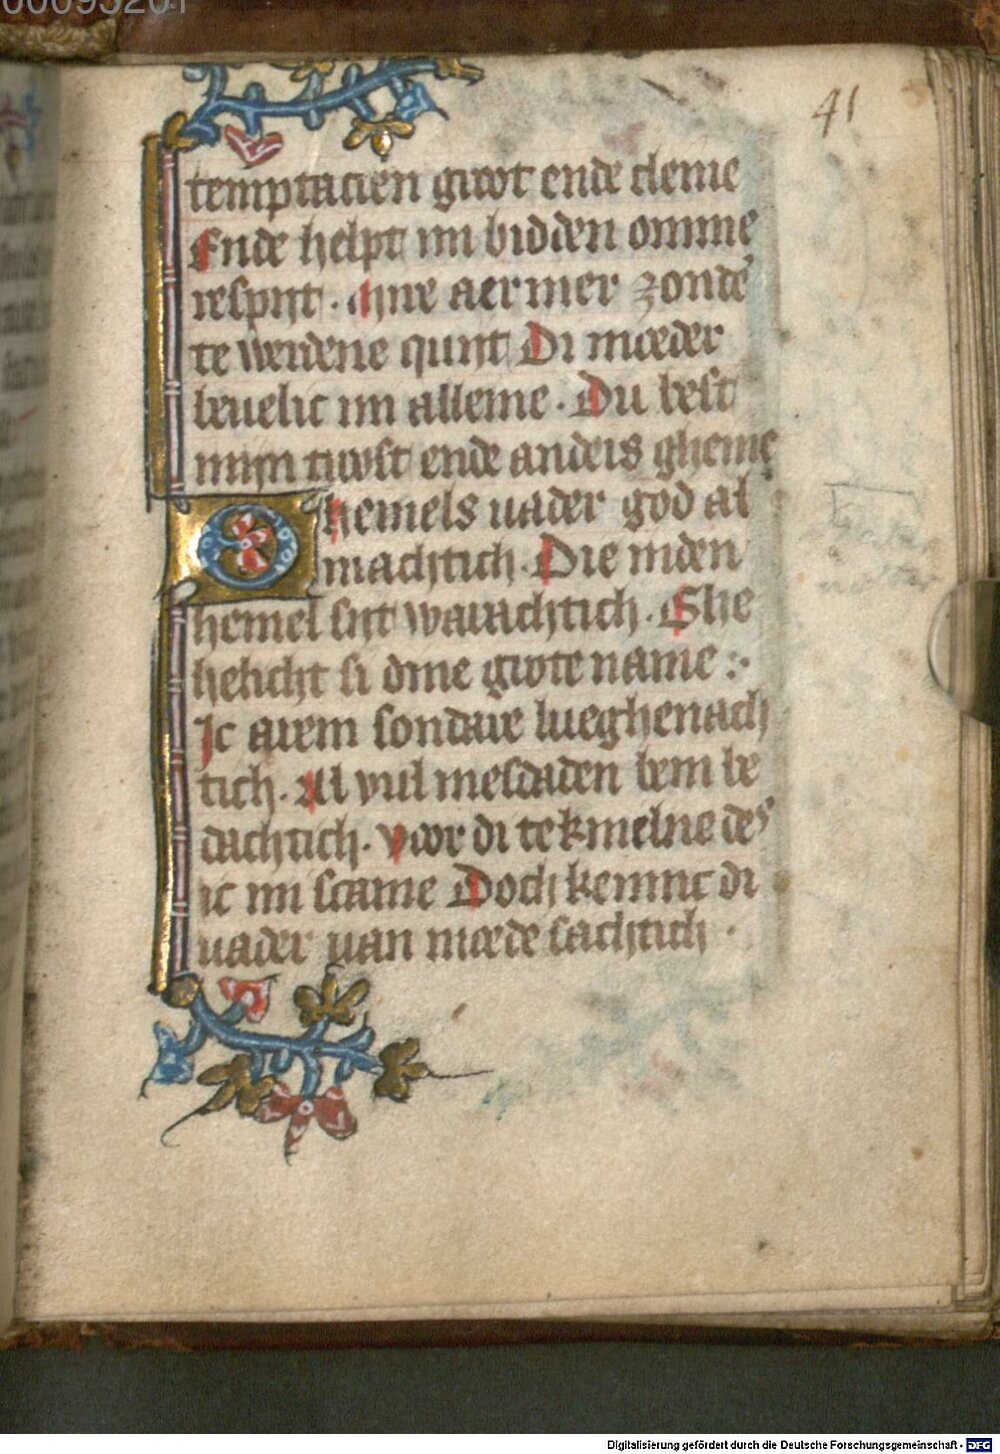 41
temptacien groot ende cleine
Ende helpt mi bidden omme
respijt. Mine aermer zonde
te weidene quijt Di moeder
bevelic mi alleine. Du best
mijn troost ende anders gheine
O hemels vader god al
machtich. Die inden
hemel sijt warachtich. Ghe
helicht si dine grote name :
Ic arem sondare lueghenach
tich. Al vul mesdaden bem be
dachtich. Voor di te kmelne des
ic mi scame Doch kennic di
vader van moede sachtich.
Digitalisierung gefördert durch die Deutsche Forschungsgemeinschaft - DFG